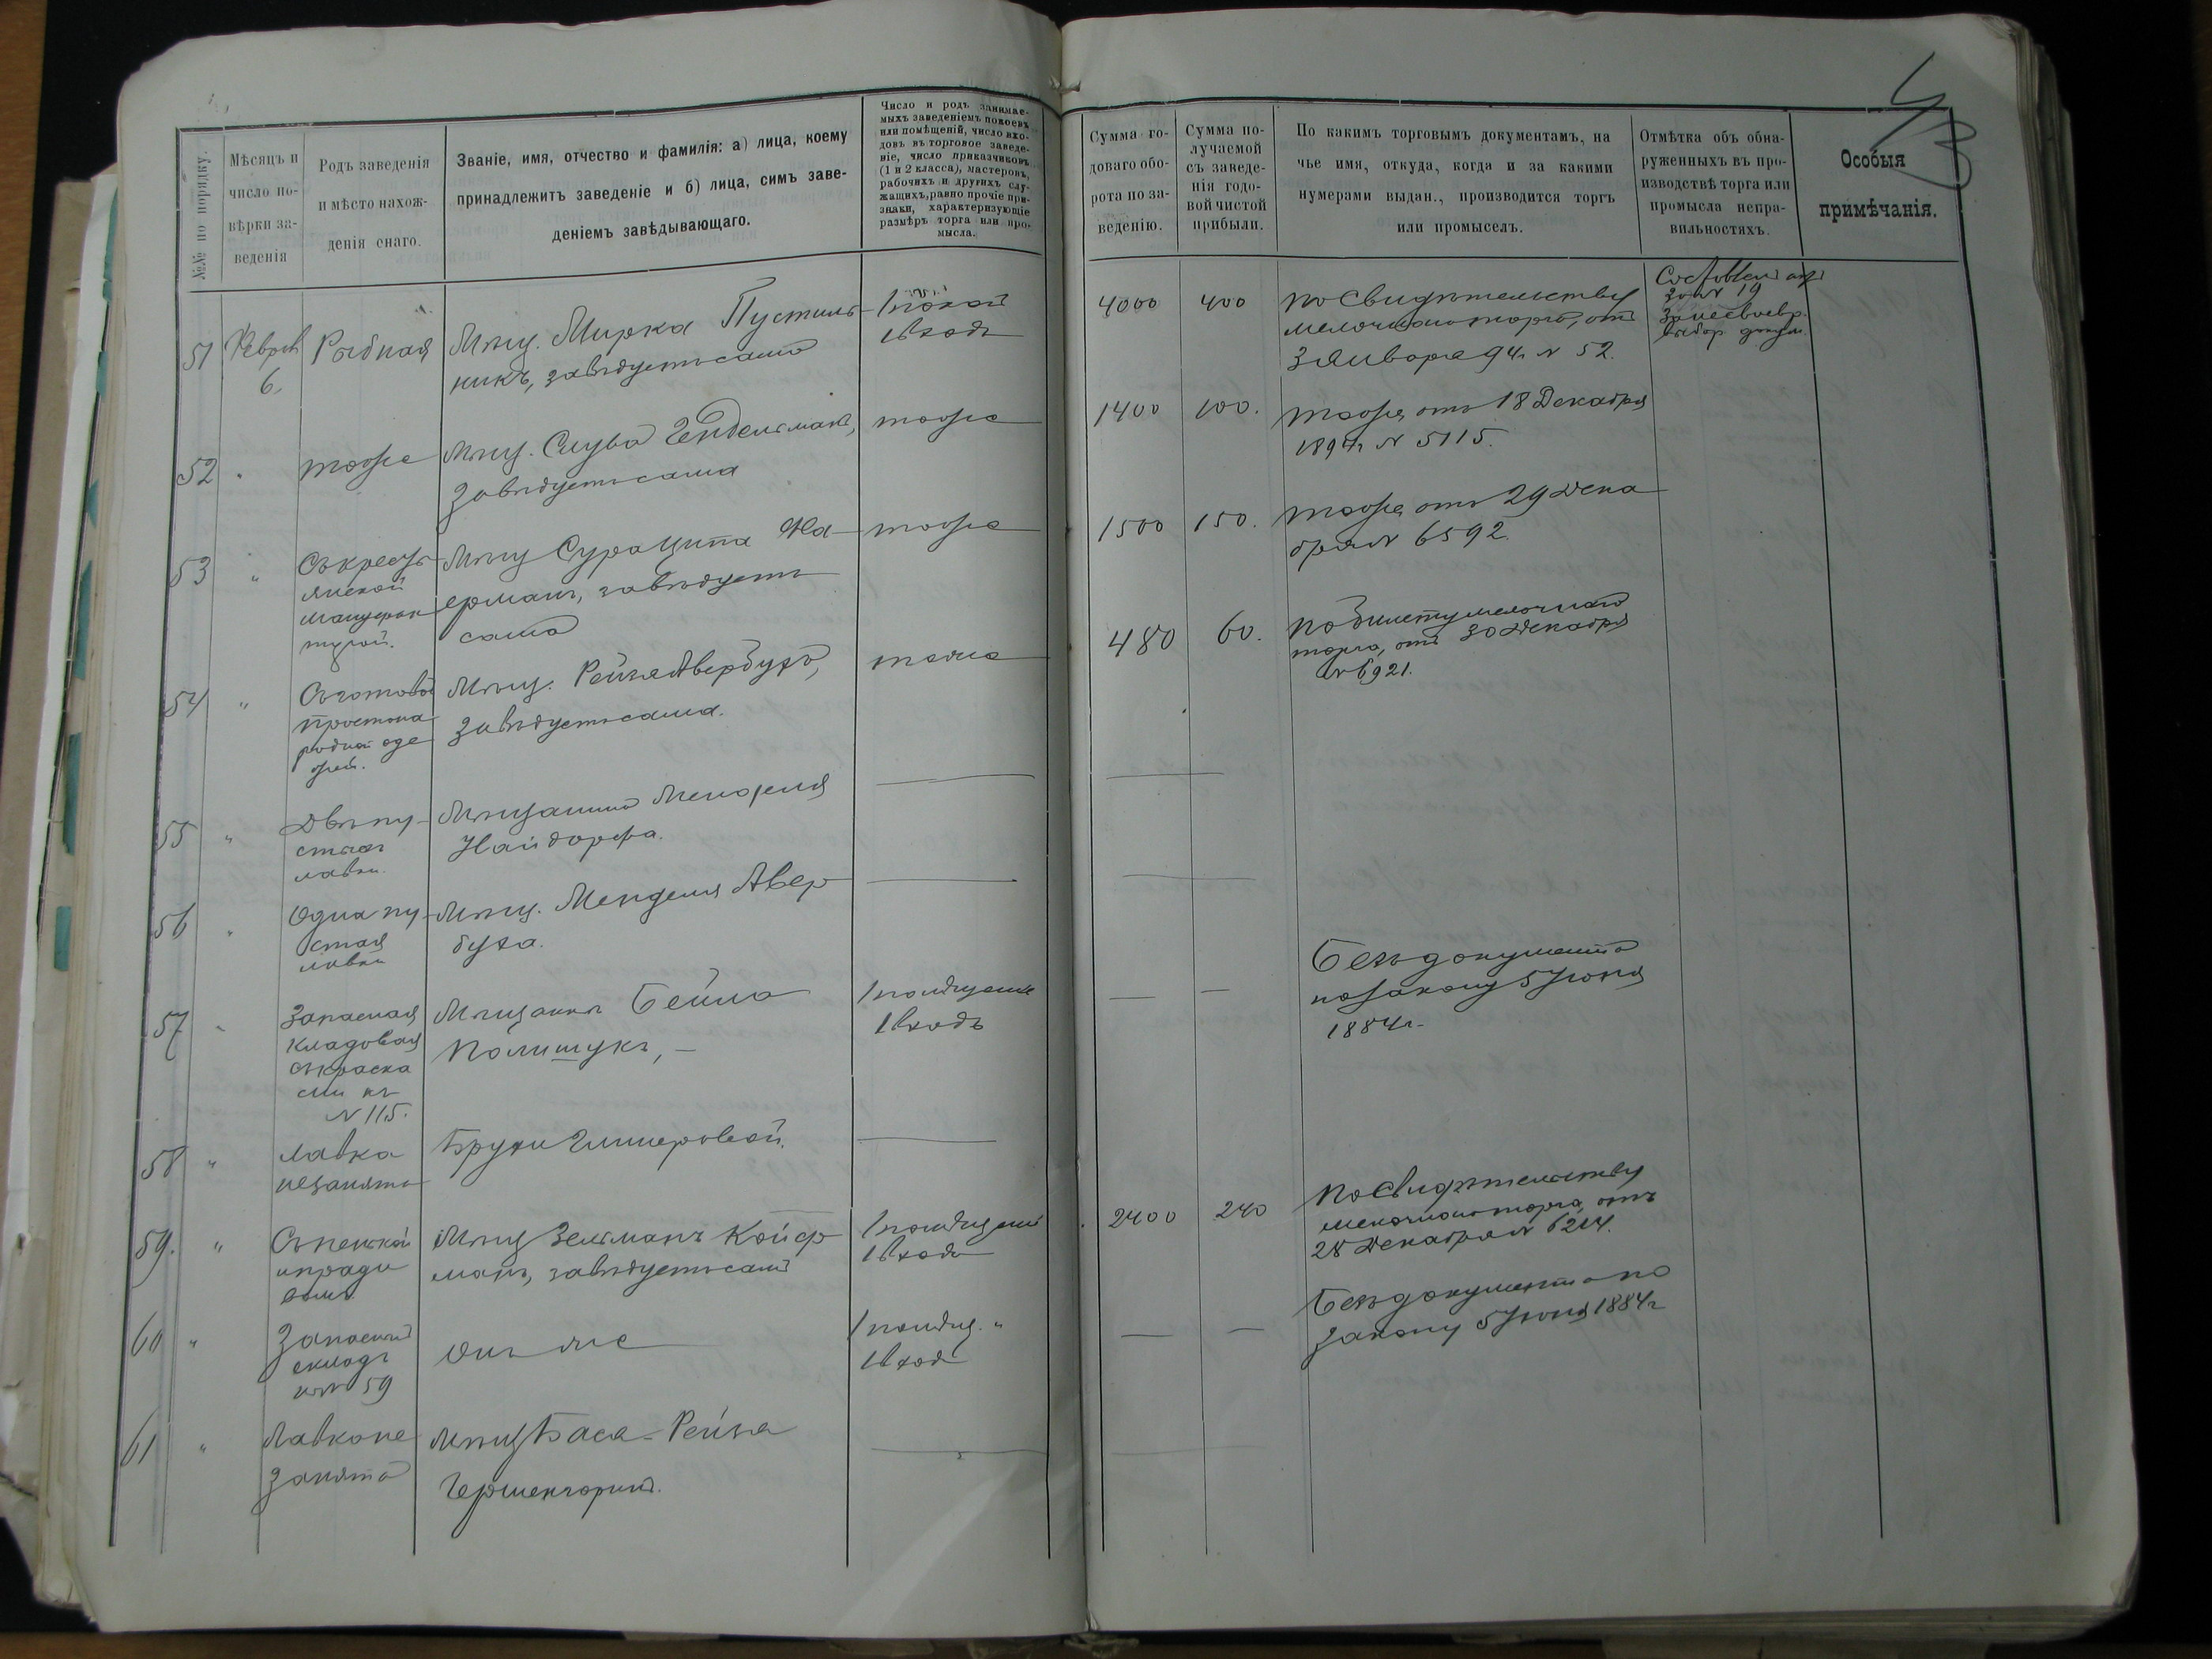 №№ по порядку.
Мѣсяцъ и
число по-
вѣрки за-
веденія
Родъ заведенія
и мѣсто нахож-
денія онаго.
Званіе, имя, отчество и фамилія: а) лица, коему
принадлежитъ заведеніе и б) лица, симъ заве-
деніемъ завѣдывающаго.
Число и родъ занимае-
мыхъ заведеніемъ покоевъ
или помѣщеній, число вхо-
довъ въ торговое заведе-
ніе, число приказчиковъ
(1 и 2 класса), мастеровъ,
рабочихъ и другихъ слу-
жащихъ, равно прочіе при-
знаки, характеризующіе
размѣръ торга или про-
мысла.
Сумма го-
доваго обо-
рота по за-
веденію.
Сумма по-
лучаемой
съ заведе-
нія годо-
вой чистой
прибыли.
По какимъ торговымъ документамъ, на
чье имя, откуда, когда и за какими
нумерами выдан., производится торгъ
или промыселъ.
Отмѣтка объ обна-
руженныхъ въ про-
изводствѣ торга или
промысла непра-
вильностяхъ.
Особыя
примѣчанія.
51
Февраль
6.
Рыбная
Мѣщ. Мирка Пустиль-
никъ, завѣдуетъ сама
1 покой
1 входъ
4000
400
по свидѣтельству
мелочнаго торга, отъ
3 Января 94 г. № 52.
Составленъ актъ
за № 19
за несвоевр.
выбор. докум.
52
"
тоже
Мѣщ. Слува Гендельманъ,
завѣдуетъ сама
тоже
1400
100.
тоже, отъ 18 Декабря
1894 г. № 5115.
53
"
Съ кресть-
янской
мануфак-
турой.
Мѣщ Сура Ципа На-
ерманъ, завѣдуетъ
сама
тоже
1500
150.
тоже, отъ 29 Дека-
бря № 6592.
54
"
Съ готовой
простона-
родной оде-
жей.
Мѣщ. Рейзя Авербухъ,
завѣдуетъ сама.
тоже
480
60.
по билету мелочнаго
торга, отъ 30 Декабря
№ 6921.
55
"
Двѣ пу-
стыхъ
лавки.
Мѣщанина Менделя
Найдорфа.
56
"
Одна пу-
стая
лавка
Мѣщ. Менделя Авер-
буха.
57
"
Запасная
кладовая
съ краска-
ми къ
№ 115.
Мѣщанка Бейла
Полищукъ, —
1 помѣщеніе
1 входъ
—
—
Безъ документа
по закону 5 Іюня
1884 г.
58
"
Лавка
незанята
Брухи Гимеровской.
59.
"
Съ пенькой
и пради-
вомъ.
Мѣщ Зельманъ Койф-
манъ, завѣдуетъ самъ
1 помѣщеніе
1 входъ
2400
240
По свидѣтельству
мелочнаго торга, отъ
28 Декабря № 6214.
60
"
Запасный
складъ
къ № 59
Онъ же
1 помѣщ. "
1 входъ
—
—
Безъ документа по
закону 5 Іюня 1884 г.
61
"
Лавка не
занята
Мѣщ Бася-Рейза
Гершенгоринъ.